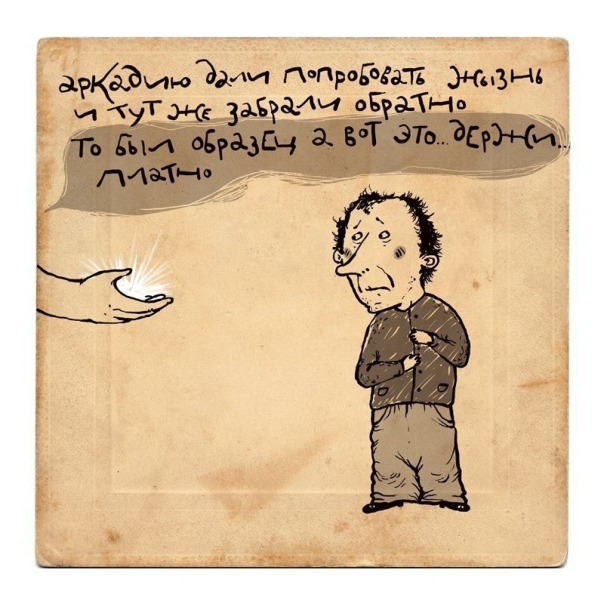 аркадию дали попробовать жызнь
и тут же забрали обратно
то был образец а вот это... держи...
платно